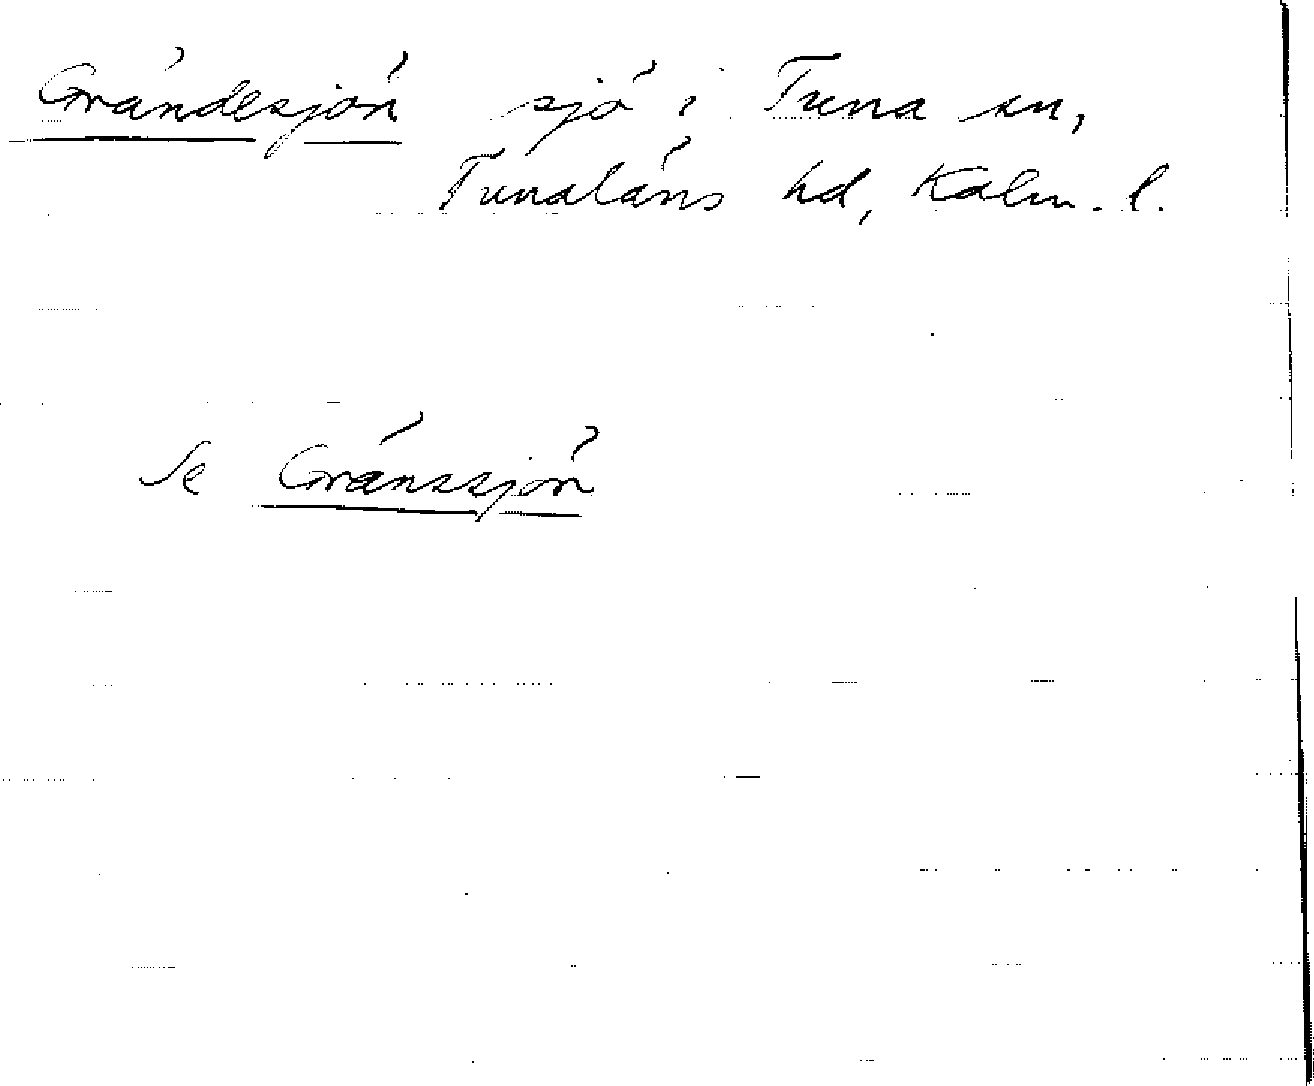 Grändesjön sjö i Tuna sn,
Tunaläns hd, Kalm. l.
Se Gränssjön